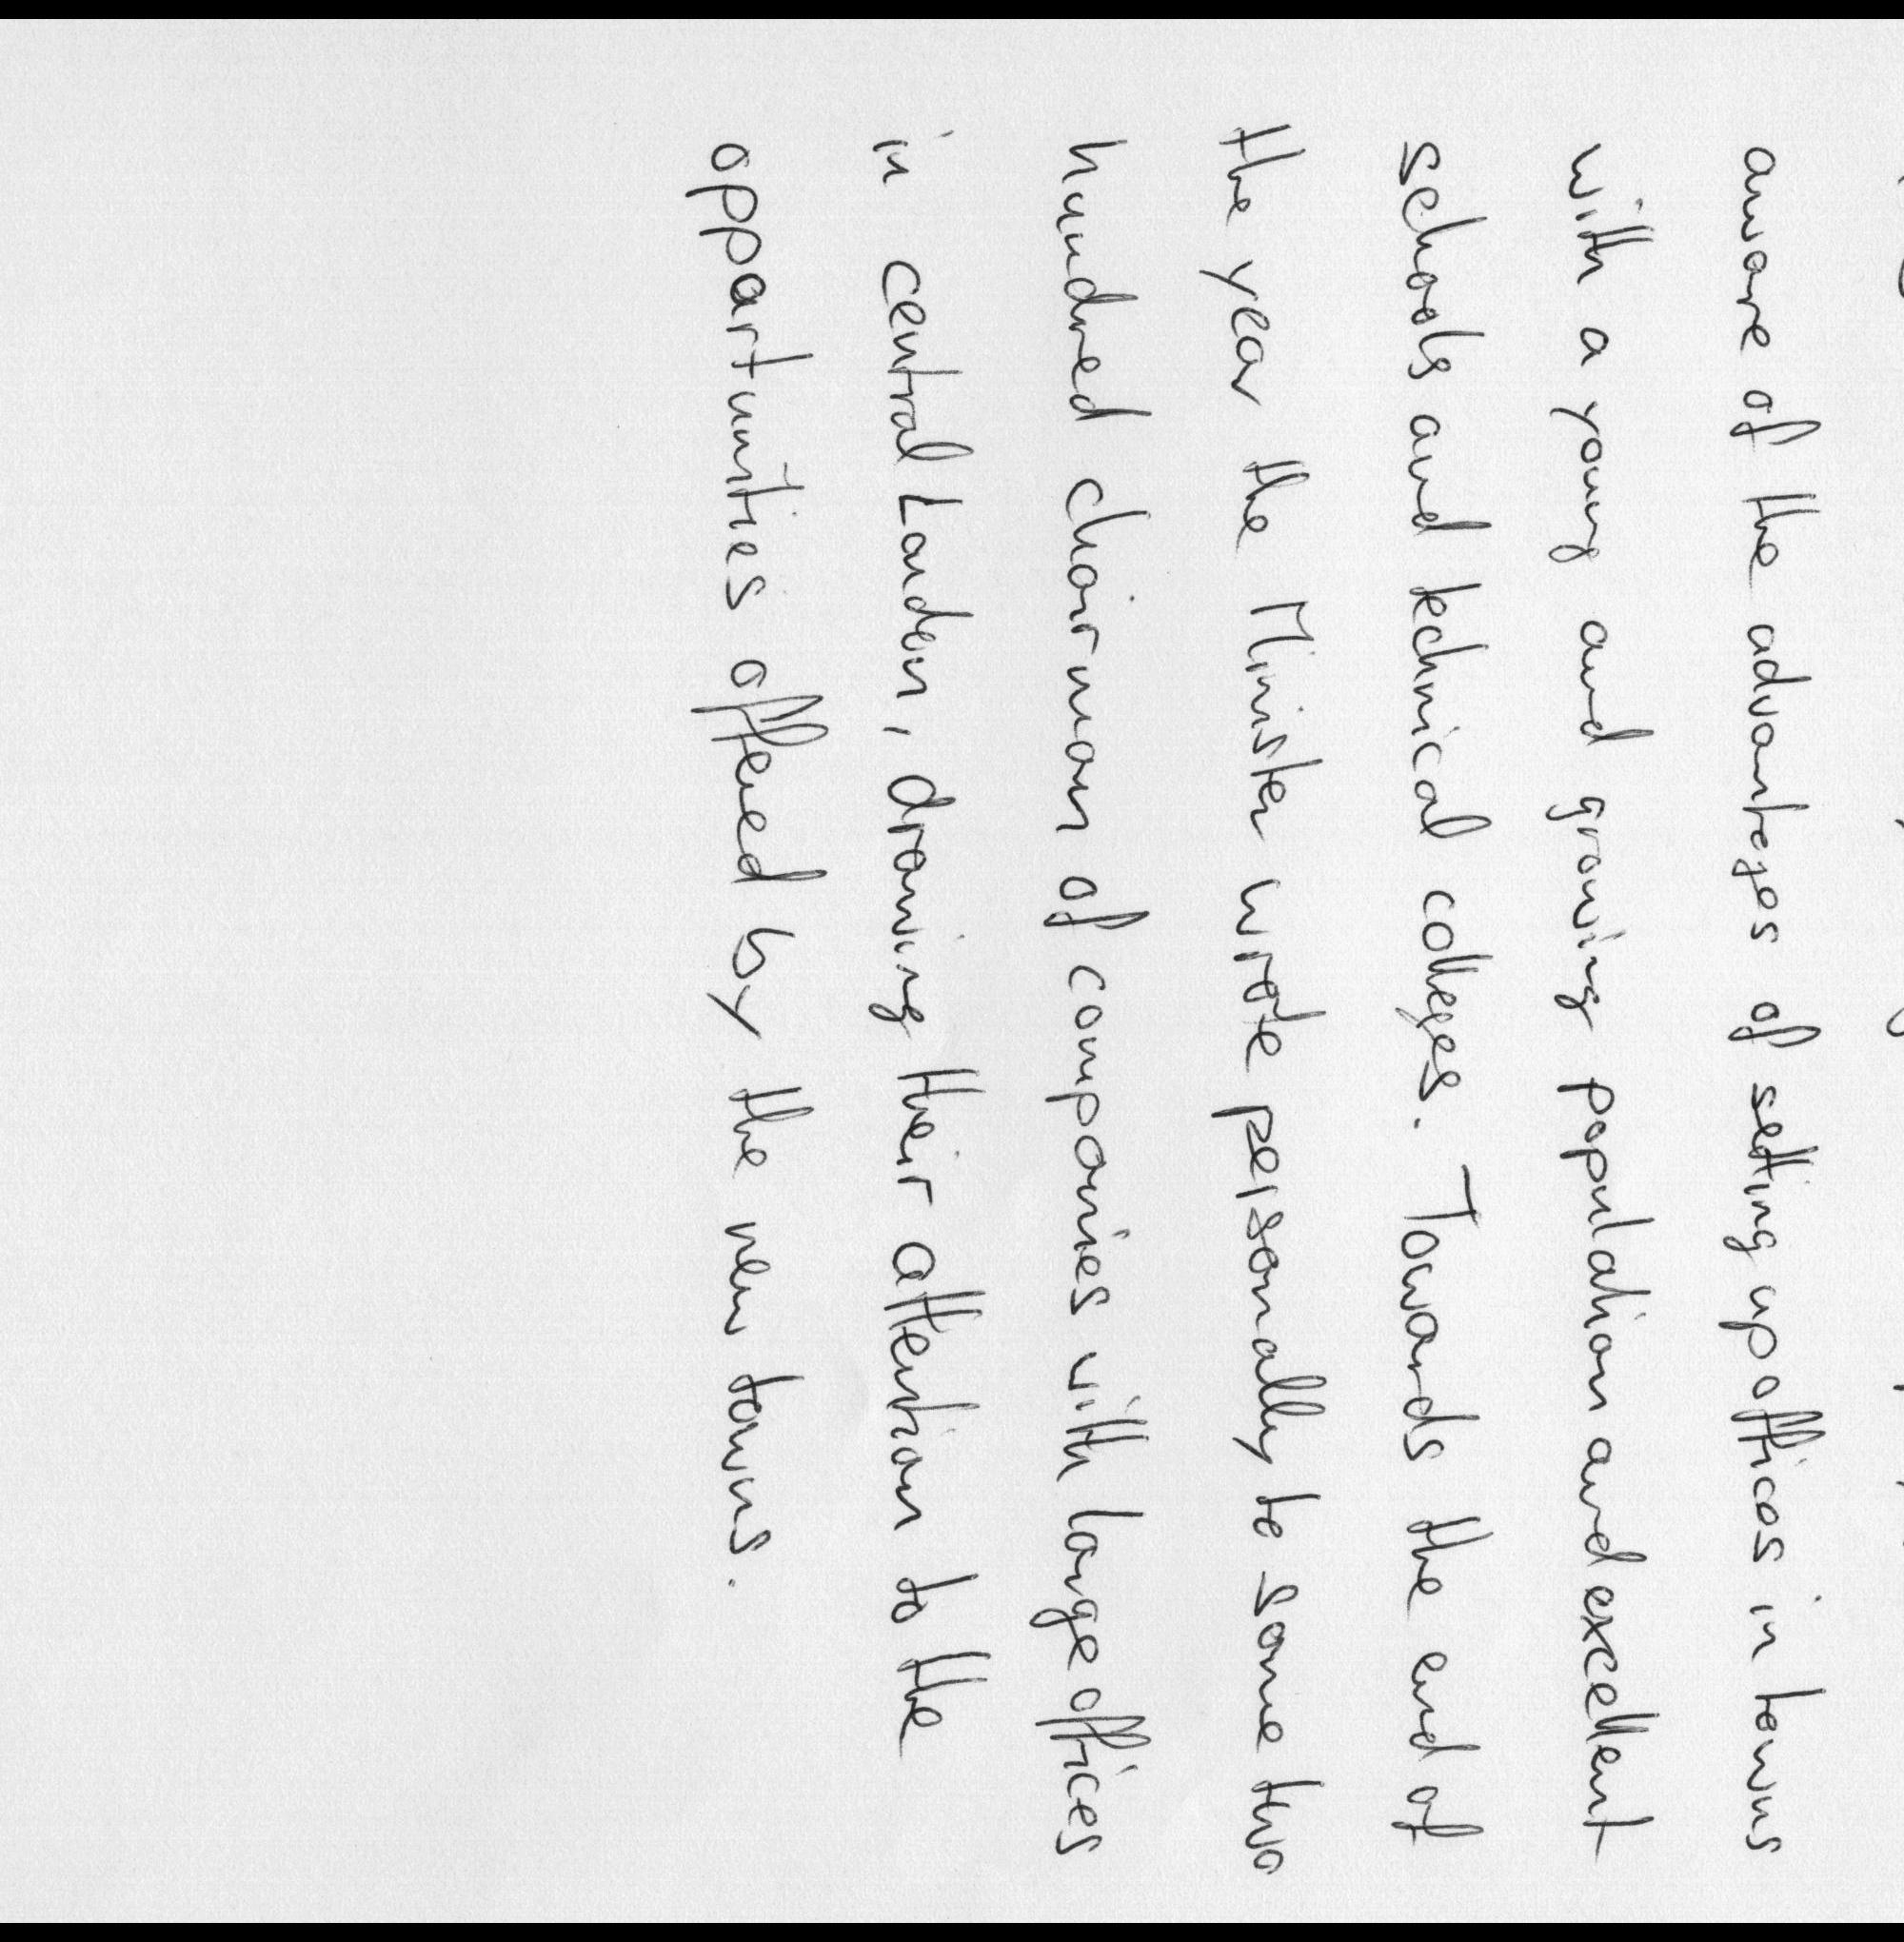 aware of the advanteges of setting up offices in towns
with a young and growing population and excellent
schools and technical colleges. Towards the end of
the year the Minister wrote personally to some two
hundred chairman of companies with large offices
in central London, drawing their attention to the
opportunities offered by the new towns.